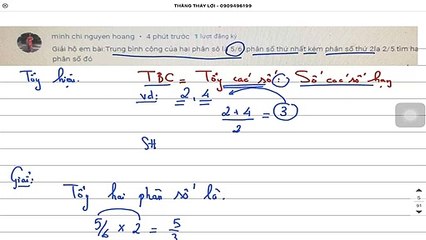 THẦNG THẦY LỢI - 0909496199
minh chi nguyen hoang • 4 phút trước 1 lượt đăng ký
Giải hộ em bài: Trung bình cộng của hai phân số là 5/6, phân số thứ nhất kém phân số thứ 2 là 2/5. tìm hai
phân số đó
Tổng hiệu. TBC = Tổng các số : Số các số hạng
vd: 2, 4
2+4
2
= 3
SH
Giải:
Tổng hai phân số là.
5/6 x 2 = 5
3
5
91